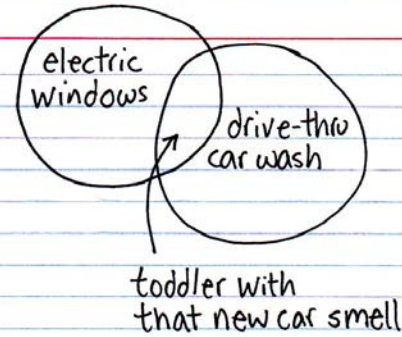 electric
windows
drive-thru
car wash
toddler with
that new car smell